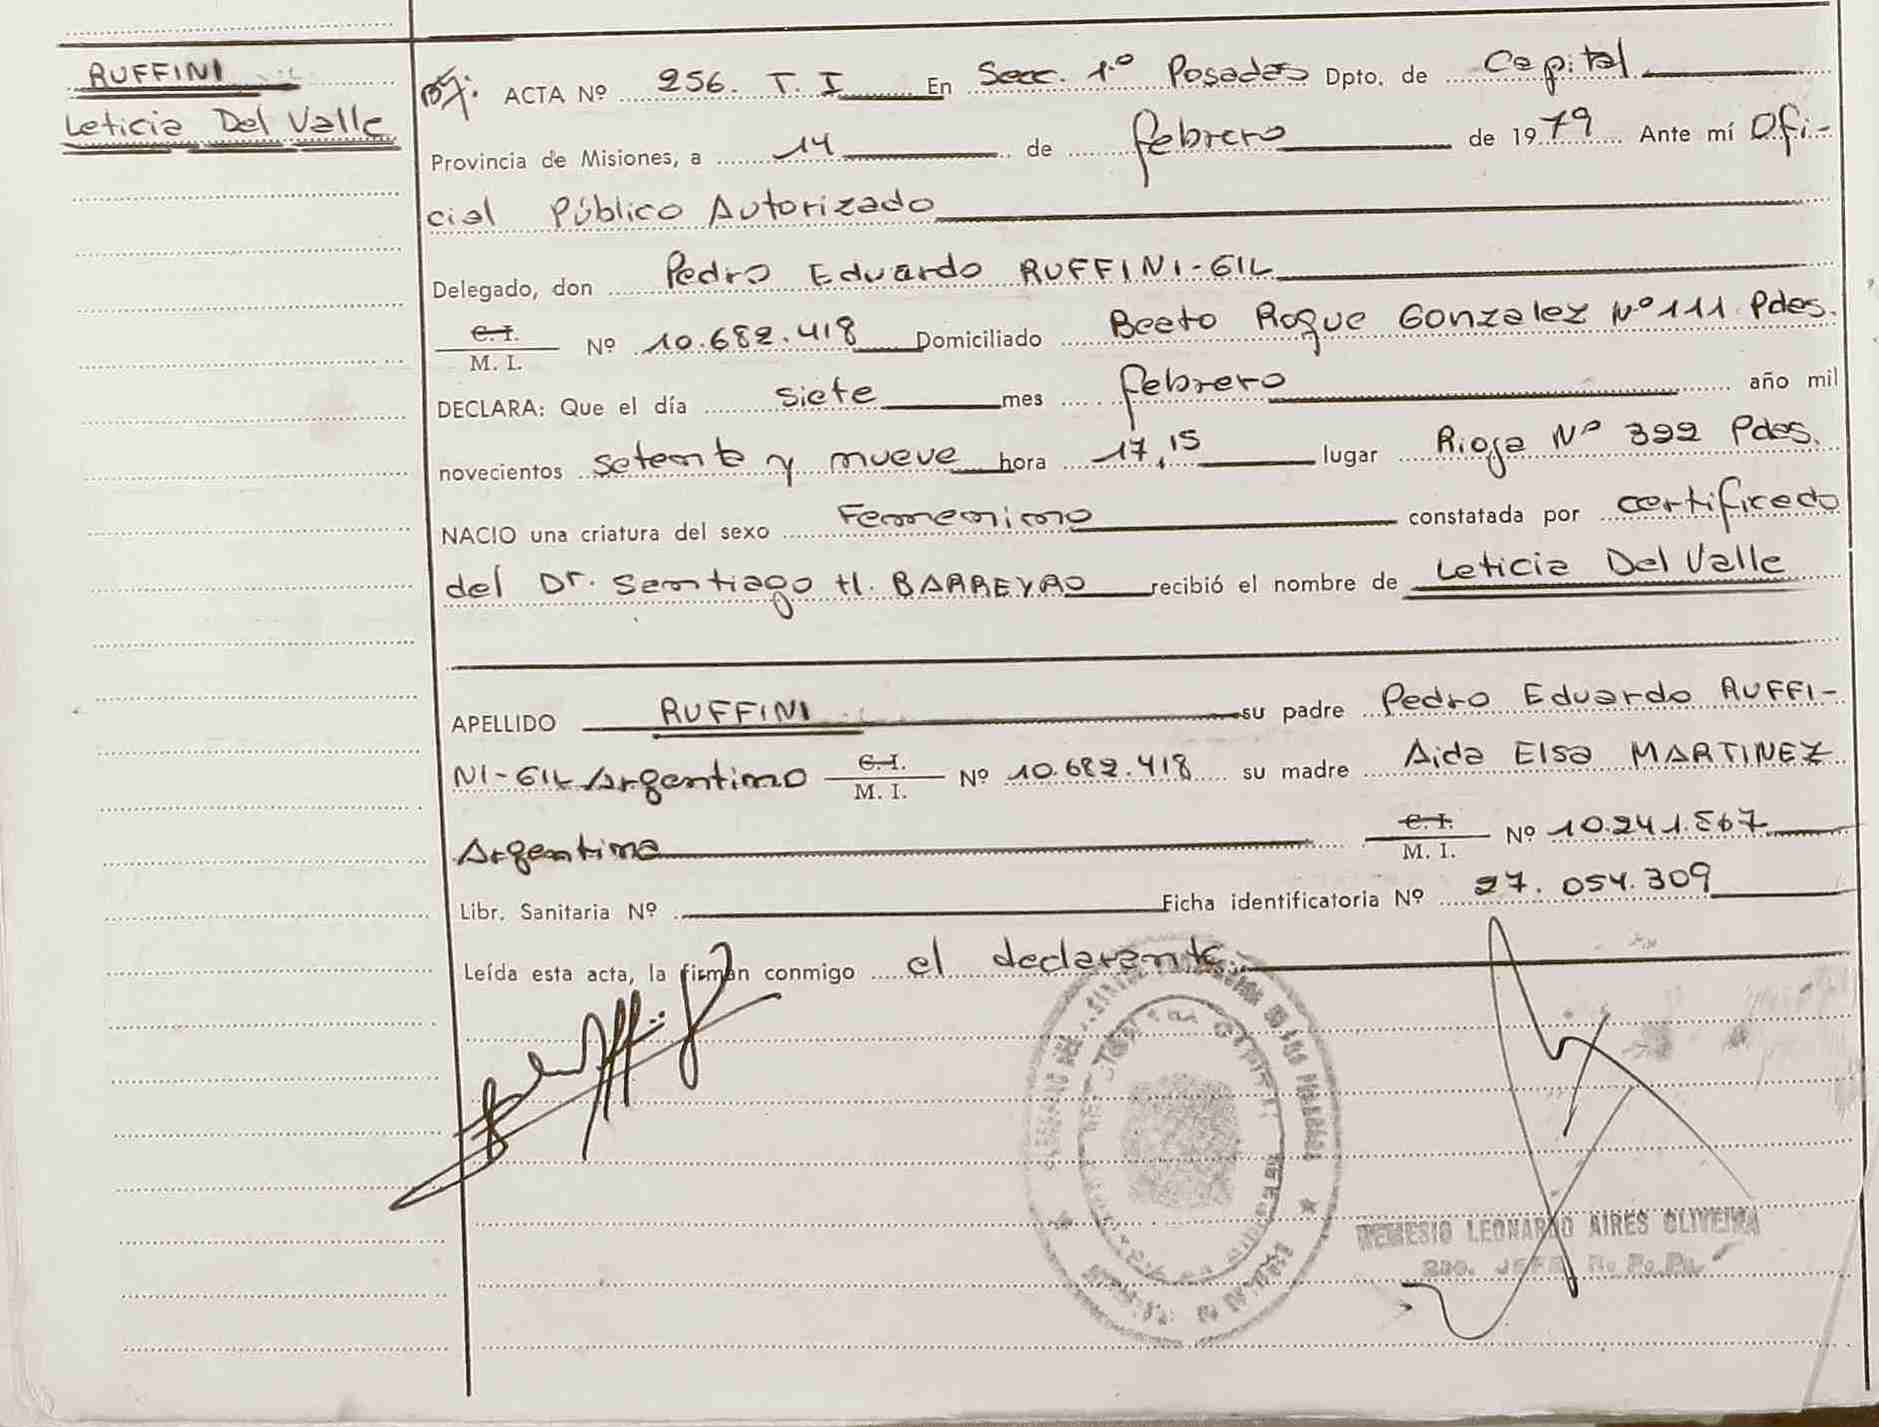 RUFFINI
Leticia Del Valle
ACTA Nº 256. T. I En Secc. 1.º Posadas Dpto. de Capital
Provincia de Misiones, a 14 de febrero de 1979 Ante mí Ofi-
cial Público Autorizado
Delegado, don Pedro Eduardo RUFFINI-GIL
C. I.
M. I. Nº 10.682.418 Domiciliado Beato Roque Gonzalez Nº 111 Pdas.
DECLARA: Que el día siete mes febrero año mil
novecientos setenta y nueve hora 17,15 lugar Rioja Nº 392 Pdas.
NACIO una criatura del sexo Femenino constatada por certificado
del Dr. Santiago H. BARREYRO recibió el nombre de Leticia Del Valle
APELLIDO RUFFINI su padre Pedro Eduardo RUFFI-
NI-GIL Argentino C. I. M. I. Nº 10.682.418 su madre Aida Elsa MARTINEZ
Argentina C. I. M. I. Nº 10.241.567
Libr. Sanitaria Nº Ficha identificatoria Nº 27.054.309
Leída esta acta, la firman conmigo el declarante.
LEONARDO AIRES OLIVEIRA
2do. JEFE